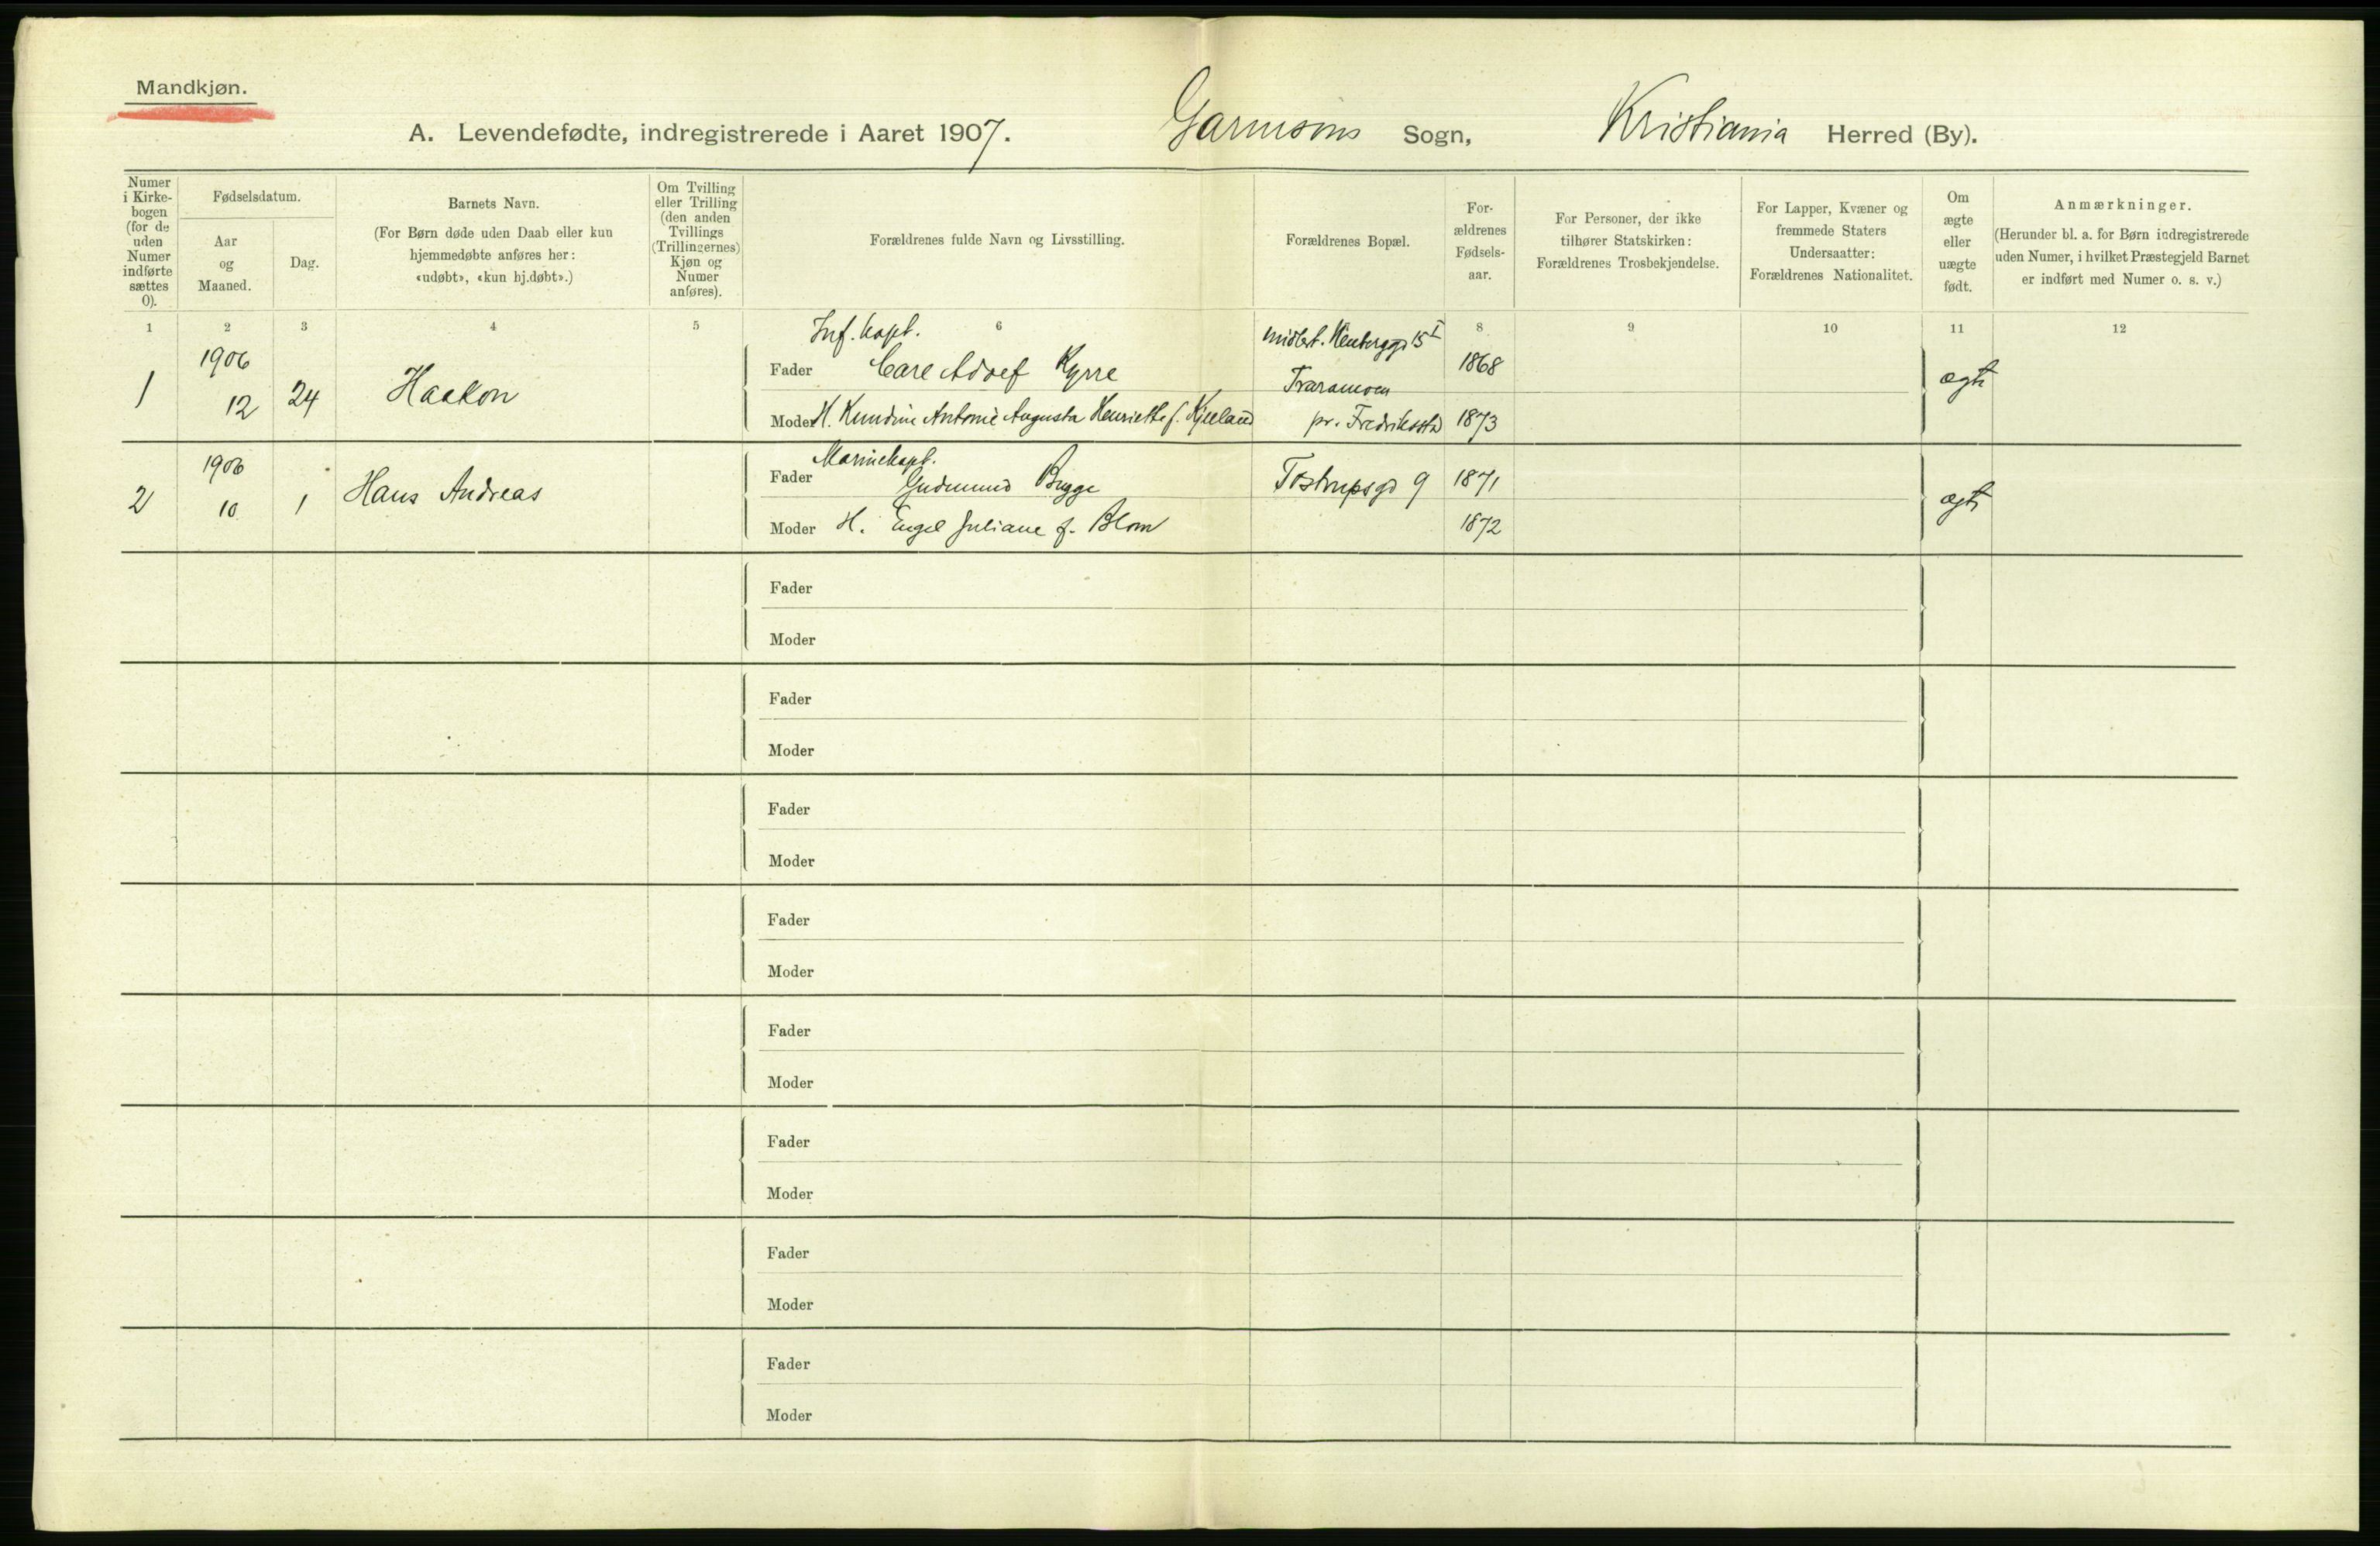 Mandkjøn.
A. Levendefødte, indregistrerede i Aaret 1907. Garnisons Sogn, Kristiania Herred (By).
Numer i Kirke-bogen (for de uden Numer indførte sættes 0).
Fødselsdatum.
Aar og Maaned.
Dag.
Barnets Navn.
(For Børn døde uden Daab eller kun
hjemmedøbte anføres her:
«udøbt», «kun hj.døbt».)
Om Tvilling
eller Trilling
(den anden
Tvillings
(Trillingernes)
Kjøn og
Numer
anføres).
Forældrenes fulde Navn og Livsstilling.
Forældrenes Bopæl.
For-
ældrenes
Fødsels-
aar.
For Personer, der ikke
tilhører Statskirken:
Forældrenes Trosbekjendelse.
For Lapper, Kvæner og
fremmede Staters
Undersaatter:
Forældrenes Nationalitet.
Om
ægte
eller
uægte
født.
Anmærkninger.
(Herunder bl. a. for Børn indregistrerede
uden Numer, i hvilket Præstegjeld Barnet
er indført med Numer o. s. v.)
1 2 3 4 5 6 8 9 10 11 12
1 1906 12 24 Haakon
Inf. kapt.
Fader Carl Adolf Kyrre
Moder H. Antonie Augusta Henriette f. Kjelland
midlert. 15 I
pr. Fredriksstad
1868
1873
ægte
2 1906 10 1 Hans Andreas
Marinekapt.
Fader Gudmund Bugge
Moder H. Engel Juliane f. Blom
Tostrupsgd 9
1871
1872
ægte
Fader
Moder
Fader
Moder
Fader
Moder
Fader
Moder
Fader
Moder
Fader
Moder
Fader
Moder
Fader
Moder